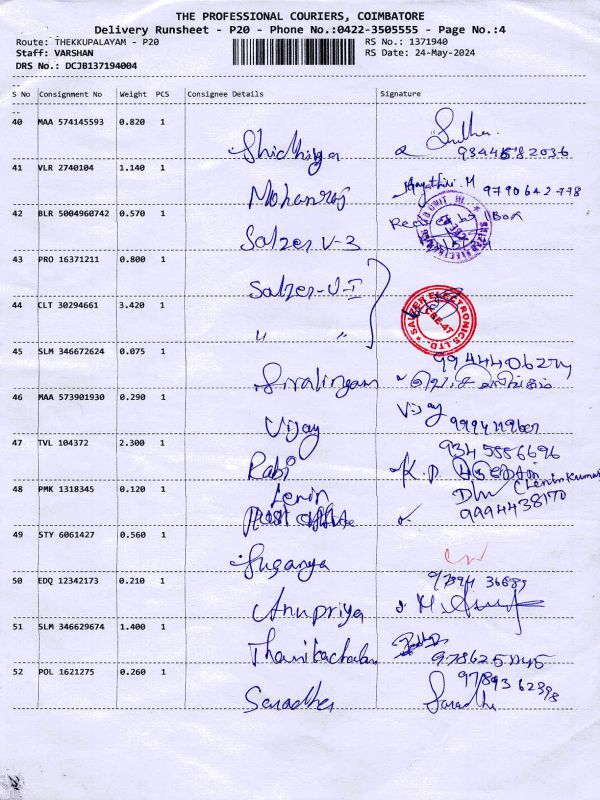 THE PROFESSIONAL COURIERS, COIMBATORE
Delivery Runsheet - P20 - Phone No.:0422-3505555 - Page No.:4
Route: THEKKUPALAYAM - P20
RS No.: 1371940
Staff: VARSHAN
RS Date: 24-May-2024
DRS No.: DCJB137194004
S No Consignment No Weight PCS Consignee Details Signature
40 MAA 574145593 0.820 1
9344582036
41 VLR 2740104 1.140 1
Mohanraj Gayathiri. M 9790642778
42 BLR 5004960742 0.570 1
Salzer U-3
43 PRO 16371211 0.800 1
Salzer-U-I
44 CLT 30294661 3.420 1
" "
SALZER ELECTRONICS LTD.
45 SLM 346672624 0.075 1
Sivalingam
46 MAA 573901930 0.290 1
Vijay Vijay
47 TVL 104372 2.300 1
9345556696
Rabi K. P
48 PMK 1318345 0.120 1
Lenin (Lenin Kumar
Post office 9994438170
49 STY 6061427 0.560 1
Suganya
50 EDQ 12342173 0.210 1
Anupriya
51 SLM 346629674 1.400 1
52 POL 1621275 0.260 1
9789362398
Saradha Saradha